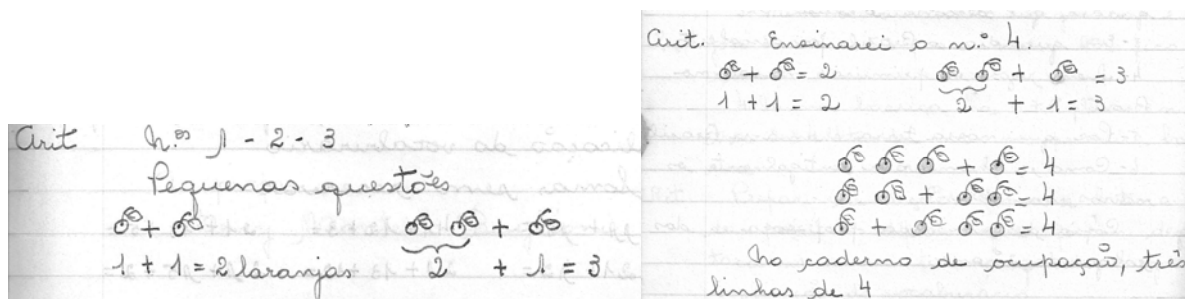 Arit   N.os 1 - 2 - 3
Pequenas questões
+   +
1 + 1 = 2 laranjas   2   + 1 = 3
Arit.   Ensinarei o n.º 4.
+ = 2   + = 3
1 + 1 = 2   2   + 1 = 3
+ = 4
+ = 4
+ = 4
No caderno de ocupação, três
linhas de 4